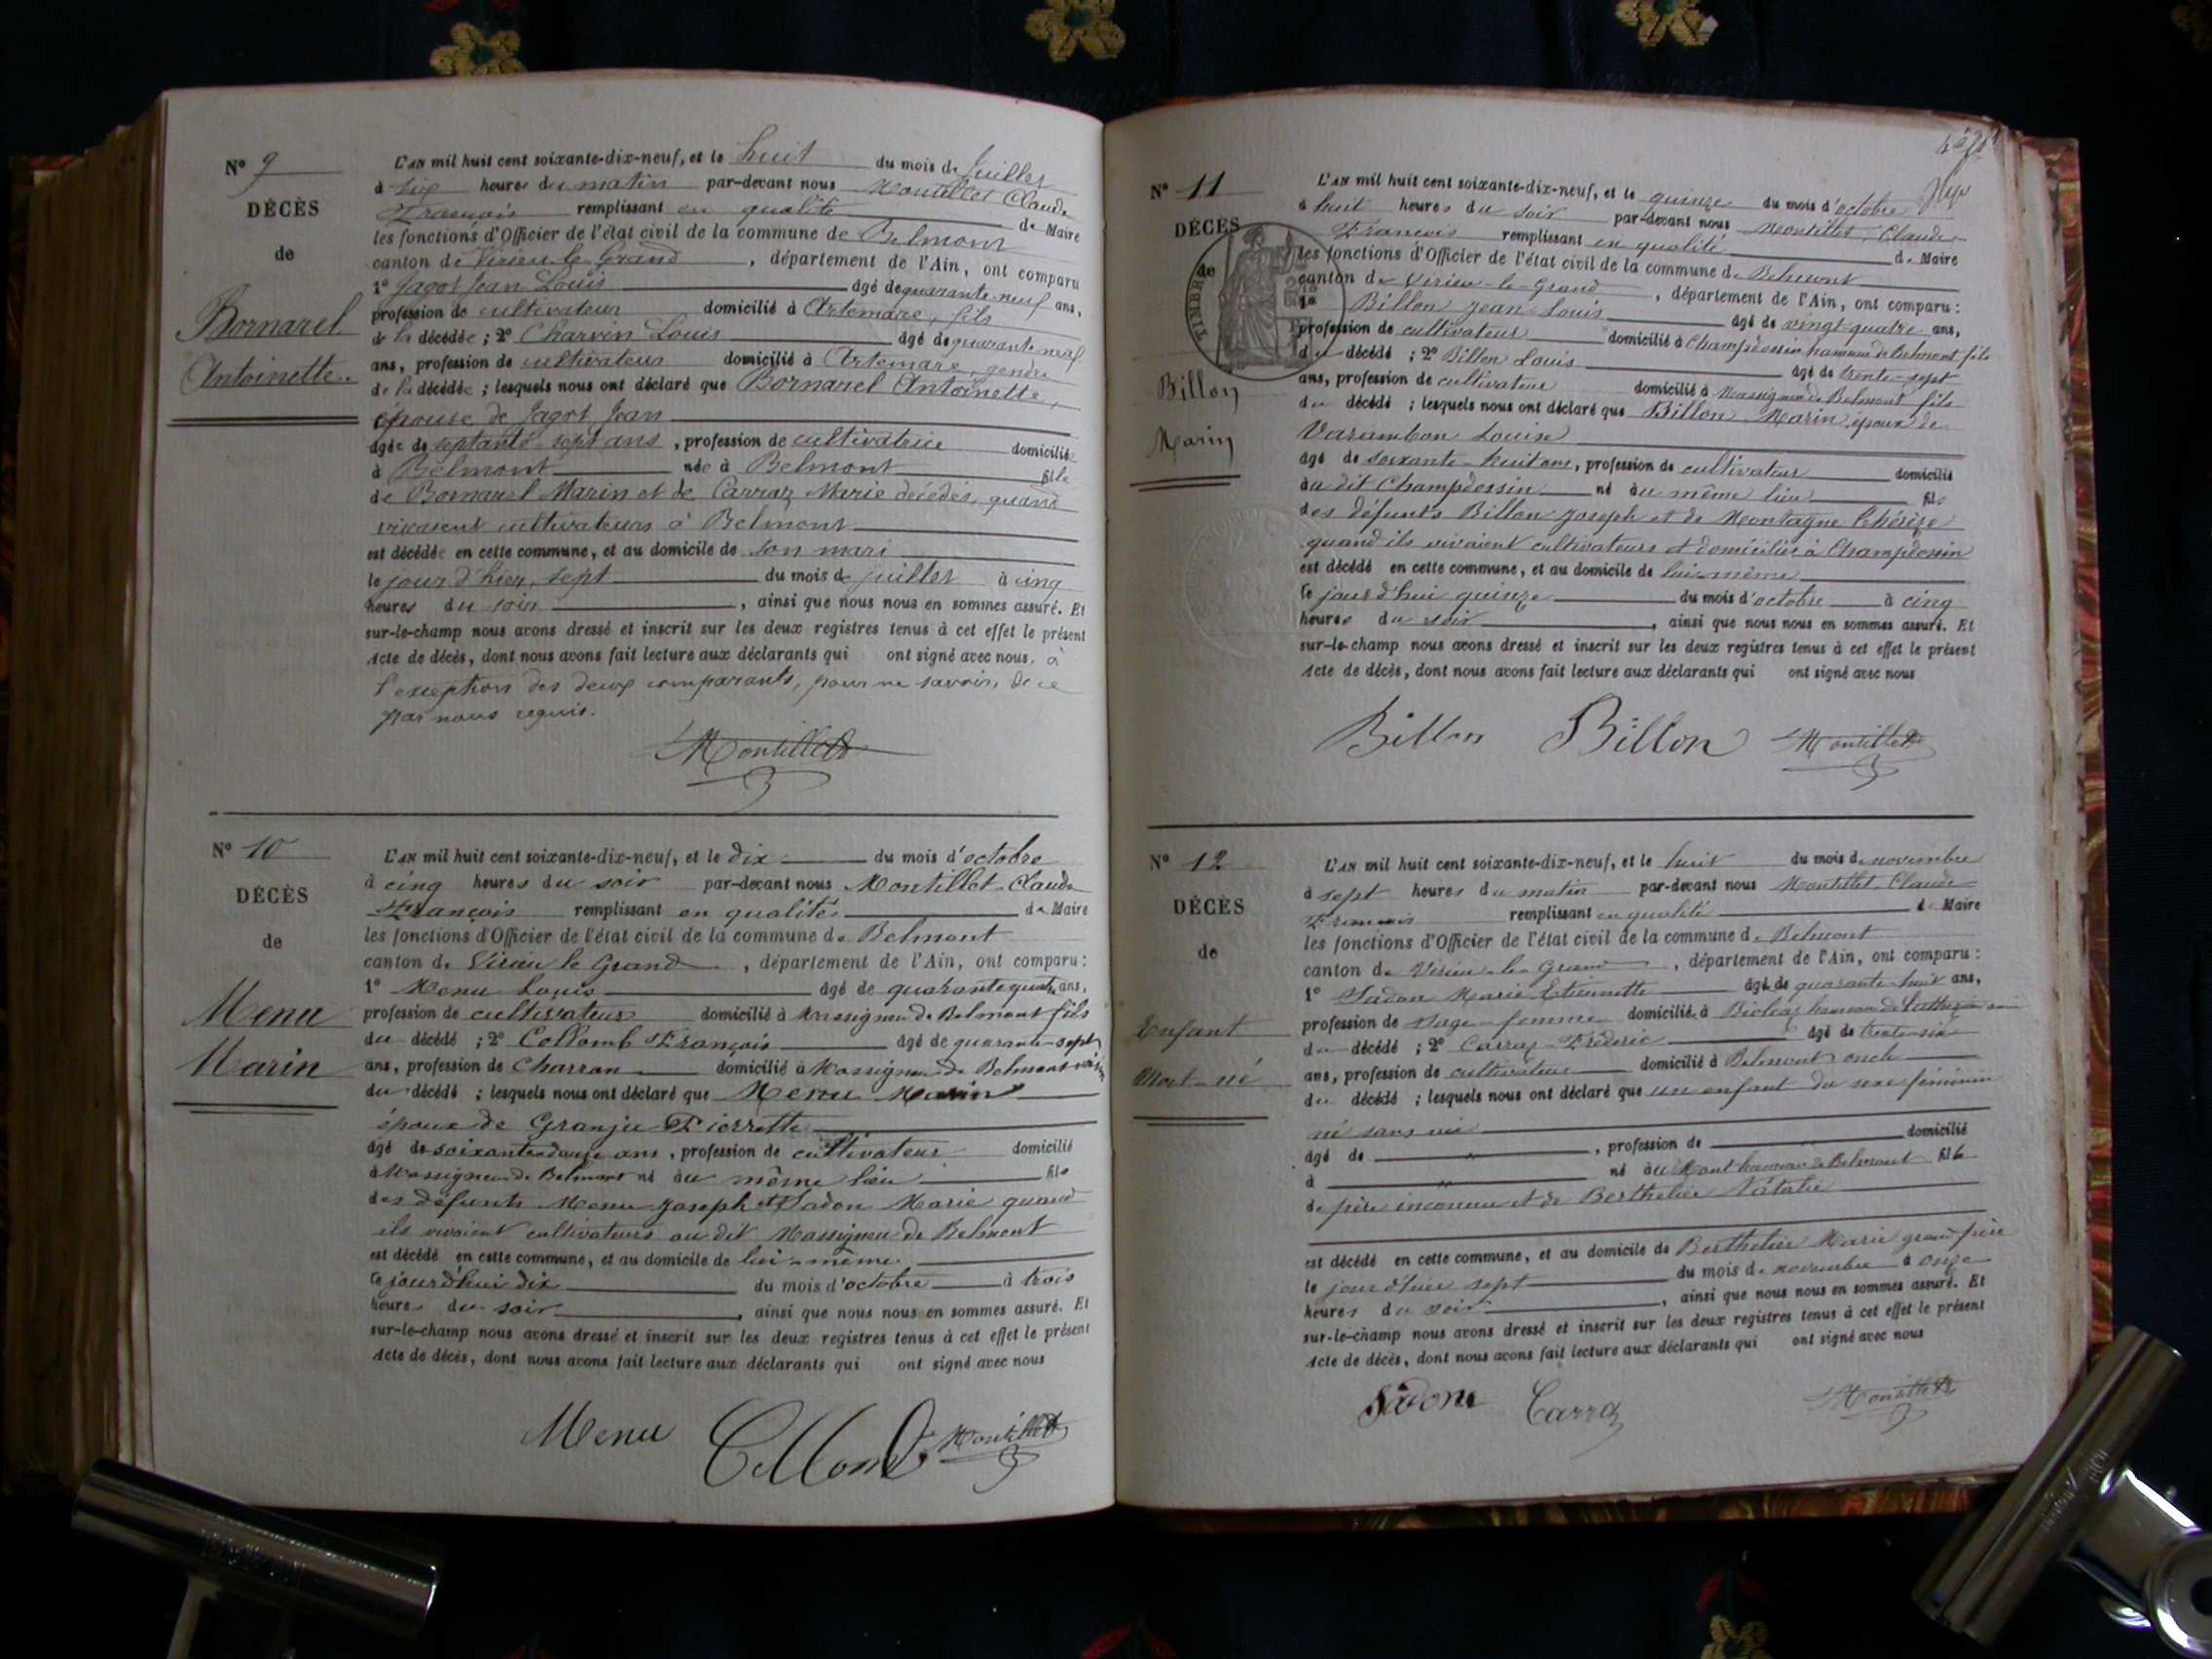 N° 9
DÉCÈS
de
Bornarel
Antoinette
L'AN mil huit cent soixante-dix-neuf, et le huit du mois de Juillet
à six heures du matin par-devant nous Montillet Claude
François remplissant en qualité de Maire
les fonctions d'Officier de l'état civil de la commune de Belmont
canton de Virieu le Grand, département de l'Ain, ont comparu
1° Jagot Jean Louis âgé de quarante-neuf ans,
profession de cultivateur domicilié à Artemare, fils
de la décédée ; 2° Charvin Louis âgé de quarante neuf
ans, profession de cultivateur domicilié à Artemare, gendre
de la décédée ; lesquels nous ont déclaré que Bornarel Antoinette,
épouse de Jagot Jean
âgée de septante-sept ans, profession de cultivatrice domiciliée
à Belmont née à Belmont fille
de Bornarel Marin et de Carraz Marie décédés, quand
vivaient cultivateurs à Belmont
est décédée en cette commune, et au domicile de son mari
le jour d'hier, sept du mois de juillet à cinq
heures du soir, ainsi que nous nous en sommes assuré. Et
sur-le-champ nous avons dressé et inscrit sur les deux registres tenus à cet effet le présent
Acte de décès, dont nous avons fait lecture aux déclarants qui ont signé avec nous, à
l'exception des deux comparants, pour ne savoir, de ce
par nous requis.
Montillet
N° 10
DÉCÈS
de
Menu
Marin
L'AN mil huit cent soixante-dix-neuf, et le dix du mois d'octobre
à cinq heures du soir par-devant nous Montillet Claude
François remplissant en qualité de Maire
les fonctions d'Officier de l'état civil de la commune de Belmont
canton de Virieu le Grand, département de l'Ain, ont comparu :
1° Menu Louis âgé de quarante quatre ans,
profession de cultivateur domicilié à Massigneu de Belmont fils
du décédé ; 2° Collomb François âgé de quarante-sept
ans, profession de Charron domicilié à Massigneu de Belmont voisin
du décédé ; lesquels nous ont déclaré que Menu Marin
époux de Granju Pierrette
âgé de soixante douze ans, profession de cultivateur domicilié
à Massigneu de Belmont né au même lieu fils
des défunts Menu Joseph et Sadon Marie quand
ils vivaient cultivateurs au dit Massigneu de Belmont
est décédé en cette commune, et au domicile de lui-même
le jourd'hui dix du mois d'octobre à trois
heures du soir, ainsi que nous nous en sommes assuré. Et
sur-le-champ nous avons dressé et inscrit sur les deux registres tenus à cet effet le présent
Acte de décès, dont nous avons fait lecture aux déclarants qui ont signé avec nous
Menu Collomb Montillet
N° 11
DÉCÈS
de
TIMBRE
Billon
Marin
L'AN mil huit cent soixante-dix-neuf, et le quinze du mois d'octobre
à huit heures du soir par-devant nous Montillet, Claude
François remplissant en qualité de Maire
les fonctions d'Officier de l'état civil de la commune de Belmont
canton de Virieu-le-Grand, département de l'Ain, ont comparu :
1° Billon Jean-Louis âgé de vingt-quatre ans,
profession de cultivateur domicilié à Champdossin hameau de Belmont fils
du décédé ; 2° Billon Louis âgé de trente-sept
ans, profession de cultivateur domicilié à Massigneu de Belmont fils
du décédé ; lesquels nous ont déclaré que Billon Marin, époux de
Varambon Louise
âgé de soixante-huit ans, profession de cultivateur domicilié
au dit Champdossin né au même lieu fils
des défunts Billon Joseph et de Montagne Thérèse
quand ils vivaient cultivateurs et domiciliés à Champdossin
est décédé en cette commune, et au domicile de lui-même
le jourd'hui quinze du mois d'octobre à cinq
heures du soir, ainsi que nous nous en sommes assuré. Et
sur-le-champ nous avons dressé et inscrit sur les deux registres tenus à cet effet le présent
Acte de décès, dont nous avons fait lecture aux déclarants qui ont signé avec nous
Billon Billon Montillet
N° 12
DÉCÈS
de
Enfant
Mort-né
L'AN mil huit cent soixante-dix-neuf, et le huit du mois de novembre
à sept heures du matin par-devant nous Montillet Claude
François remplissant en qualité de Maire
les fonctions d'Officier de l'état civil de la commune de Belmont
canton de Virieu-le-Grand, département de l'Ain, ont comparu :
1° Sadon Marie Etiennette âgé de quarante-huit ans,
profession de Sage-femme domiciliée à Bioleaz hameau de
du décédé ; 2° Carraz Fréderic âgé de trente-six
ans, profession de cultivateur domicilié à Belmont oncle
du décédé ; lesquels nous ont déclaré que un enfant du sexe féminin
né sans vie
âgé de " , profession de domicilié
à " né au Mont hameau de Belmont fille
de père inconnu et de Berthelier Natalie
est décédé en cette commune, et au domicile de Berthelier Marin grand père
le jour d'hier sept du mois de novembre à onze
heures du soir, ainsi que nous nous en sommes assuré. Et
sur-le-champ nous avons dressé et inscrit sur les deux registres tenus à cet effet le présent
Acte de décès, dont nous avons fait lecture aux déclarants qui ont signé avec nous
Sadon Carraz Montillet